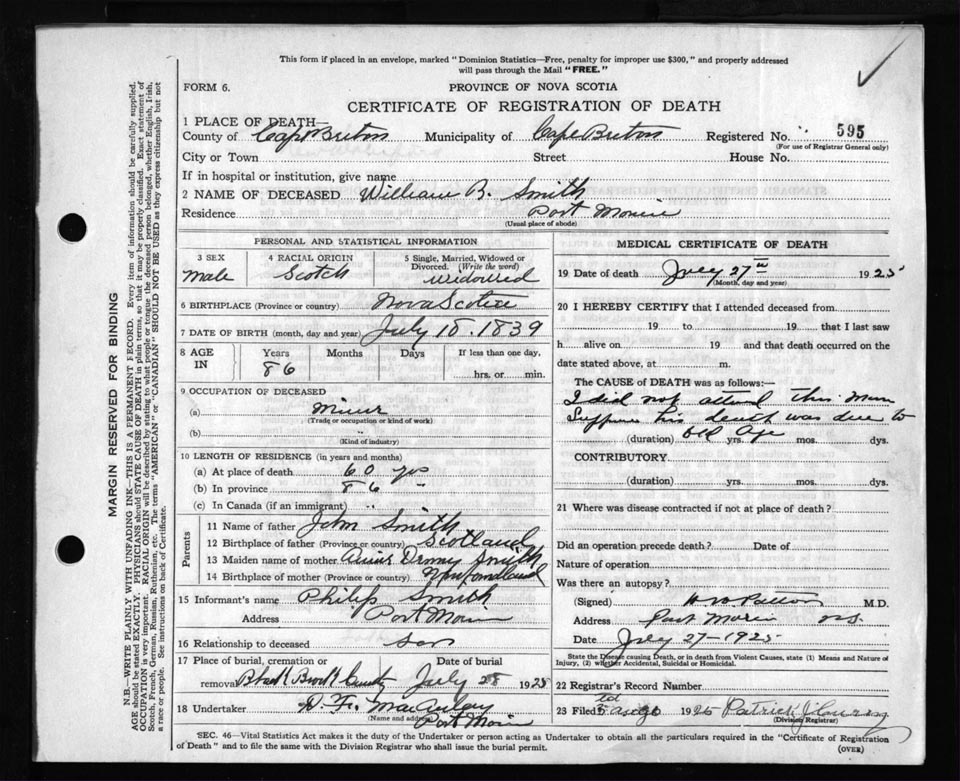 This form if placed in an envelope, marked "Dominion Statistics—Free, penalty for improper use $300," and properly addressed
will pass through the Mail "FREE."
FORM 6.
PROVINCE OF NOVA SCOTIA
CERTIFICATE OF REGISTRATION OF DEATH
1 PLACE OF DEATH—
County of Cape Breton Municipality of Cape Breton Registered No. 595
(For use of Registrar General only)
City or Town Street House No.
If in hospital or institution, give name
2 NAME OF DECEASED William B. Smith
Residence Port Morien
(Usual place of abode)
PERSONAL AND STATISTICAL INFORMATION
3 SEX 4 RACIAL ORIGIN 5 Single, Married, Widowed or
Divorced. (Write the word)
Male Scotch Widowed
6 BIRTHPLACE (Province or country) Nova Scotia
7 DATE OF BIRTH (month, day and year) July 18. 1839
8 AGE IN Years Months Days If less than one day,
86 hrs. or min.
9 OCCUPATION OF DECEASED
(a) Miner
(Trade or occupation or kind of work)
(b)
(Kind of industry)
10 LENGTH OF RESIDENCE (in years and months)
(a) At place of death 60 yrs
(b) In province 86 "
(c) In Canada (if an immigrant)
Parents
11 Name of father John Smith
12 Birthplace of father (Province or country) Scotland
13 Maiden name of mother Smith
14 Birthplace of mother (Province or country) Newfoundland
15 Informant's name Philip Smith
Address Port Morien
16 Relationship to deceased Son
17 Place of burial, cremation or Date of burial
removal Black Brook July 28 1925
18 Undertaker D. F. MacAulay
(Name and address) Port Morien
MEDICAL CERTIFICATE OF DEATH
19 Date of death July 27 1925
(Month, day and year)
20 I HEREBY CERTIFY that I attended deceased from
19 to 19 that I last saw
h alive on 19 and that death occurred on the
date stated above, at m.
The CAUSE of DEATH was as follows:—
I did not attend this man
Suppose his death was due to
old age
(duration) yrs. mos. dys.
CONTRIBUTORY
(duration) yrs. mos. dys.
21 Where was disease contracted if not at place of death?
Did an operation precede death? Date of
Nature of operation
Was there an autopsy?
(Signed) M.D.
Address Port Morien N.S.
Date July 27-1925
State the Disease causing Death, or in death from Violent Causes, state (1) Means and Nature of
Injury, (2) whether Accidental, Suicidal or Homicidal.
22 Registrar's Record Number
23 Filed 1925 Patrick J.
(Division Registrar)
SEC. 46—Vital Statistics Act makes it the duty of the Undertaker or person acting as Undertaker to obtain all the particulars required in the "Certificate of Registration
of Death" and to file the same with the Division Registrar who shall issue the burial permit.
(OVER)
MARGIN RESERVED FOR BINDING
N.B.—WRITE PLAINLY WITH UNFADING INK—THIS IS A PERMANENT RECORD. Every item of information should be carefully supplied.
AGE should be stated EXACTLY. PHYSICIANS should STATE CAUSE OF DEATH in plain terms, so that it may be properly classified. Exact statement of
OCCUPATION is very important. RACIAL ORIGIN will be described by stating to what people or tongue the deceased person belonged, whether English, Irish,
Scotch, French, German, Russian, Ruthenian, etc. The terms "AMERICAN" or "CANADIAN" SHOULD NOT BE USED as they express citizenship but not
a race or people. See instructions on back of Certificate.